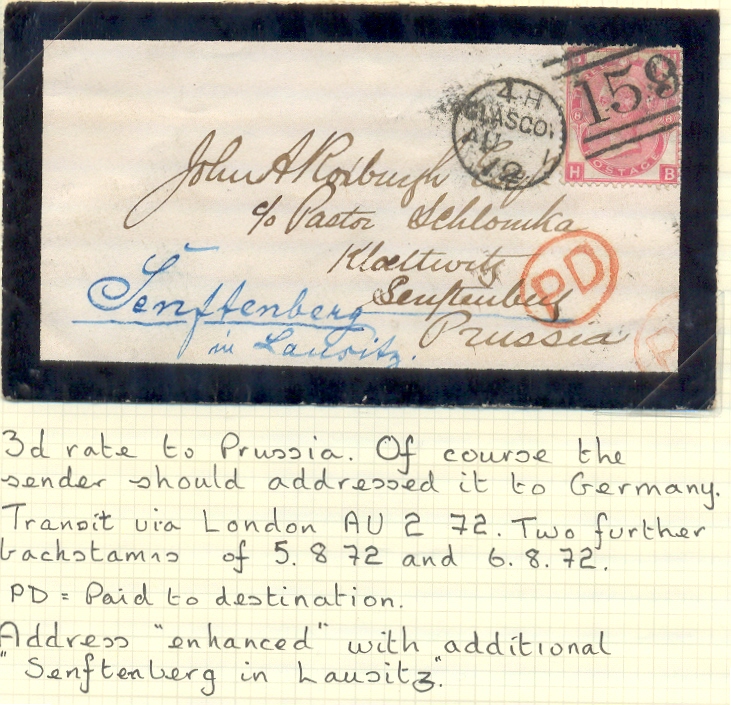 4 H
GLASGOW
AU
72
159
POSTAGE
H B
John A Roxburgh Esq
c/o Pastor Schlomka
Klettwitz
Senftenberg
Prussia
PD
Senftenberg
in Lausitz.
3d rate to Prussia. Of course the
sender should addressed it to Germany.
Transit via London AU 2 72. Two further
backstamps of 5.8 72 and 6.8.72.
PD = Paid to destination.
Address "enhanced" with additional
"Senftenberg in Lausitz".